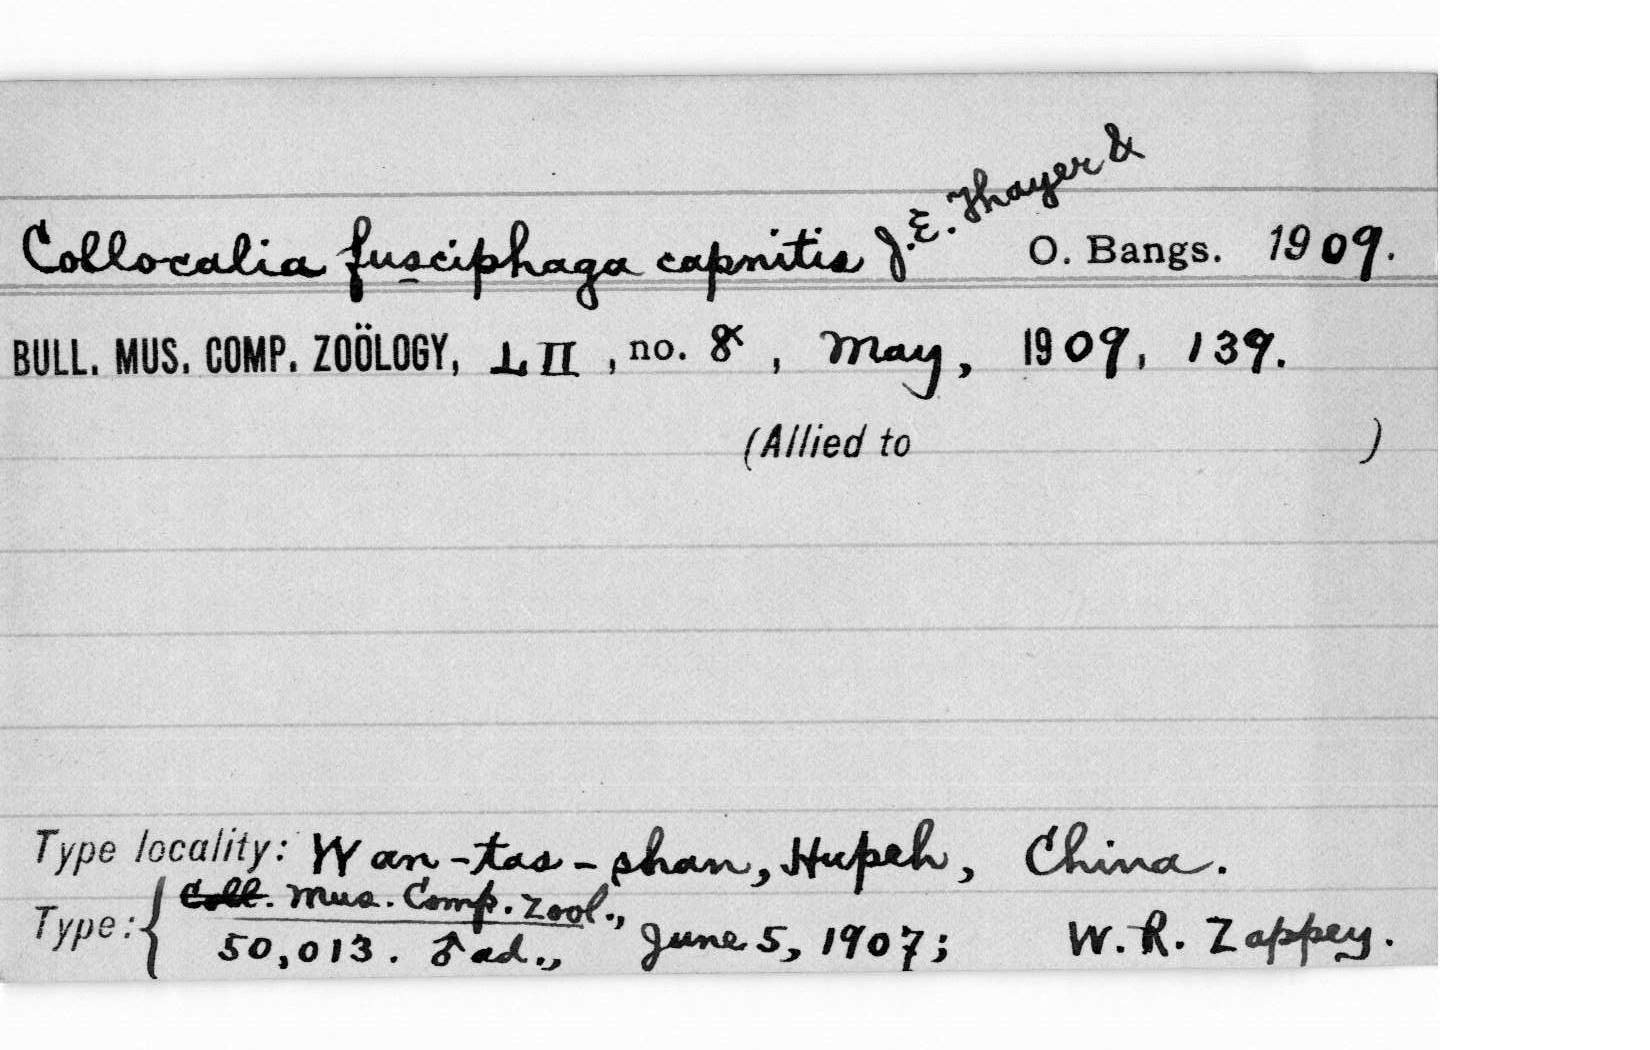 Collocalia fusciphaga capnitis J. E. Thayer & O. Bangs. 1909.
BULL. MUS. COMP. ZOÖLOGY, LII, no. 8, May, 1909, 139.
(Allied to )
Type locality: Wan-tao-shan, Hupeh, China.
Type: { Coll. Mus. Comp. Zool.,
50,013. ♂ ad., June 5, 1907; W. R. Zappey.